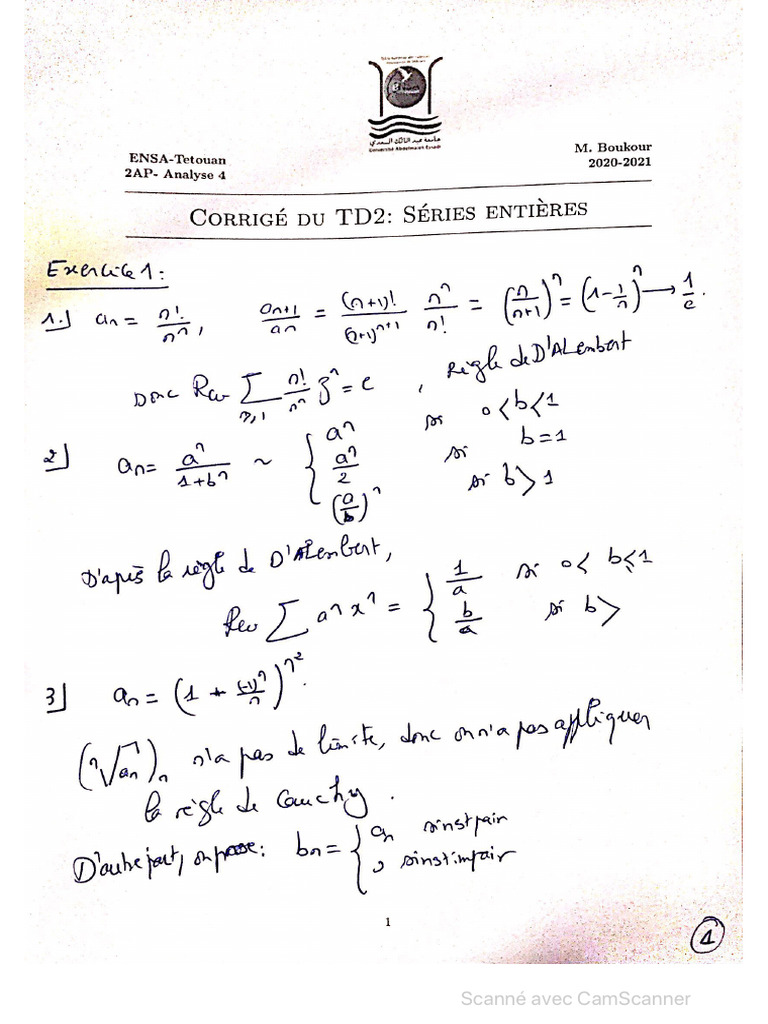 جامعة عبد المالك السعدي
Université Abdelmalek Essadi
ENSA-Tetouan
M. Boukour
2AP- Analyse 4
2020-2021
CORRIGÉ DU TD2: SÉRIES ENTIÈRES
Exercice 1:
1.) an = n!/n^n, an+1/an = (n+1)!/(n+1)^(n+1) n^n/n! = (n/(n+1))^n = (1-1/n)^n → 1/e.
Donc Rcv ∑_{n≥1} n!/n^n z^n = e, Règle de D'ALembert
2) an = a^n/(1+b^n) ~ { a^n si 0<b<1
a^n/2 si b=1
(a/b)^n si b>1
D'après la règle de D'ALembert,
Rcv ∑ a^n x^n = { 1/a si 0< b≤1
b/a si b>
3) an = (1 + (-1)^n/n)^(n^2).
(ⁿ√an)_n n'a pas de limite, donc on n'a pas appliquer
la règle de Cauchy.
D'autre part, on pose: bn = { an si n est pair
0 si n est impair
1
1
Scanné avec CamScanner